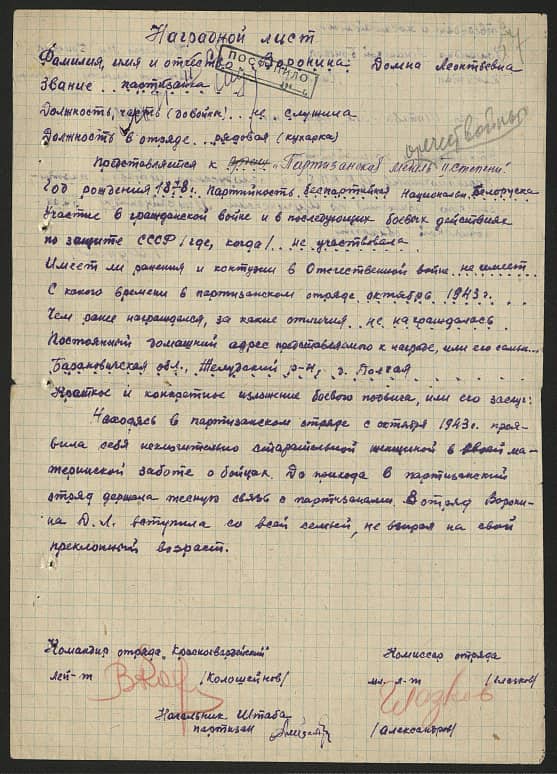 Наградной лист
Фамилия, имя и отчество Воронина Домна Леонтьевна
ПОСТУПИЛО
Звание.. партизанка
Должность, часть (довойны).. не.. служила
Должность в отряде.. рядовая (кухарка)
отечеств войны
Представляется к "Партизанская медаль II степени"
Год рождения 1878г.. Партийность беспартийная Национальн. Белоруска
Участие в гражданской войне и в последующих боевых действиях
по защите СССР /где, когда/.. не участвовала
Имеет ли ранения и контузии в Отечественной войне.. не имеет..
С какого времени в партизанском отряде октябрь 1943г.
Чем ранее награждался, за какие отличия.. не награждалась
Постоянный домашний адрес представляемого к награде, или его семьи..
Барановичская обл., Желудский р-н, д.
Краткое и конкретное изложение боевого подвига, или его заслуг:
Находясь в партизанском отряде с октября 1943г. проя-
вила себя исключительно старательной женщиной в своей ма-
теринской заботе о бойцах. До прихода в партизанский
отряд держала тесную связь с партизанами. В отряд Ворони-
на Д.Л. вступила со всей семьей, не взирая на свой
преклонный возраст.
Командир отряда "Красногвардейский" Комиссар отряда
лей-т /Колошеинов/ мл. л-т /Глазков/
Начальник Штаба
партизан /Александров/